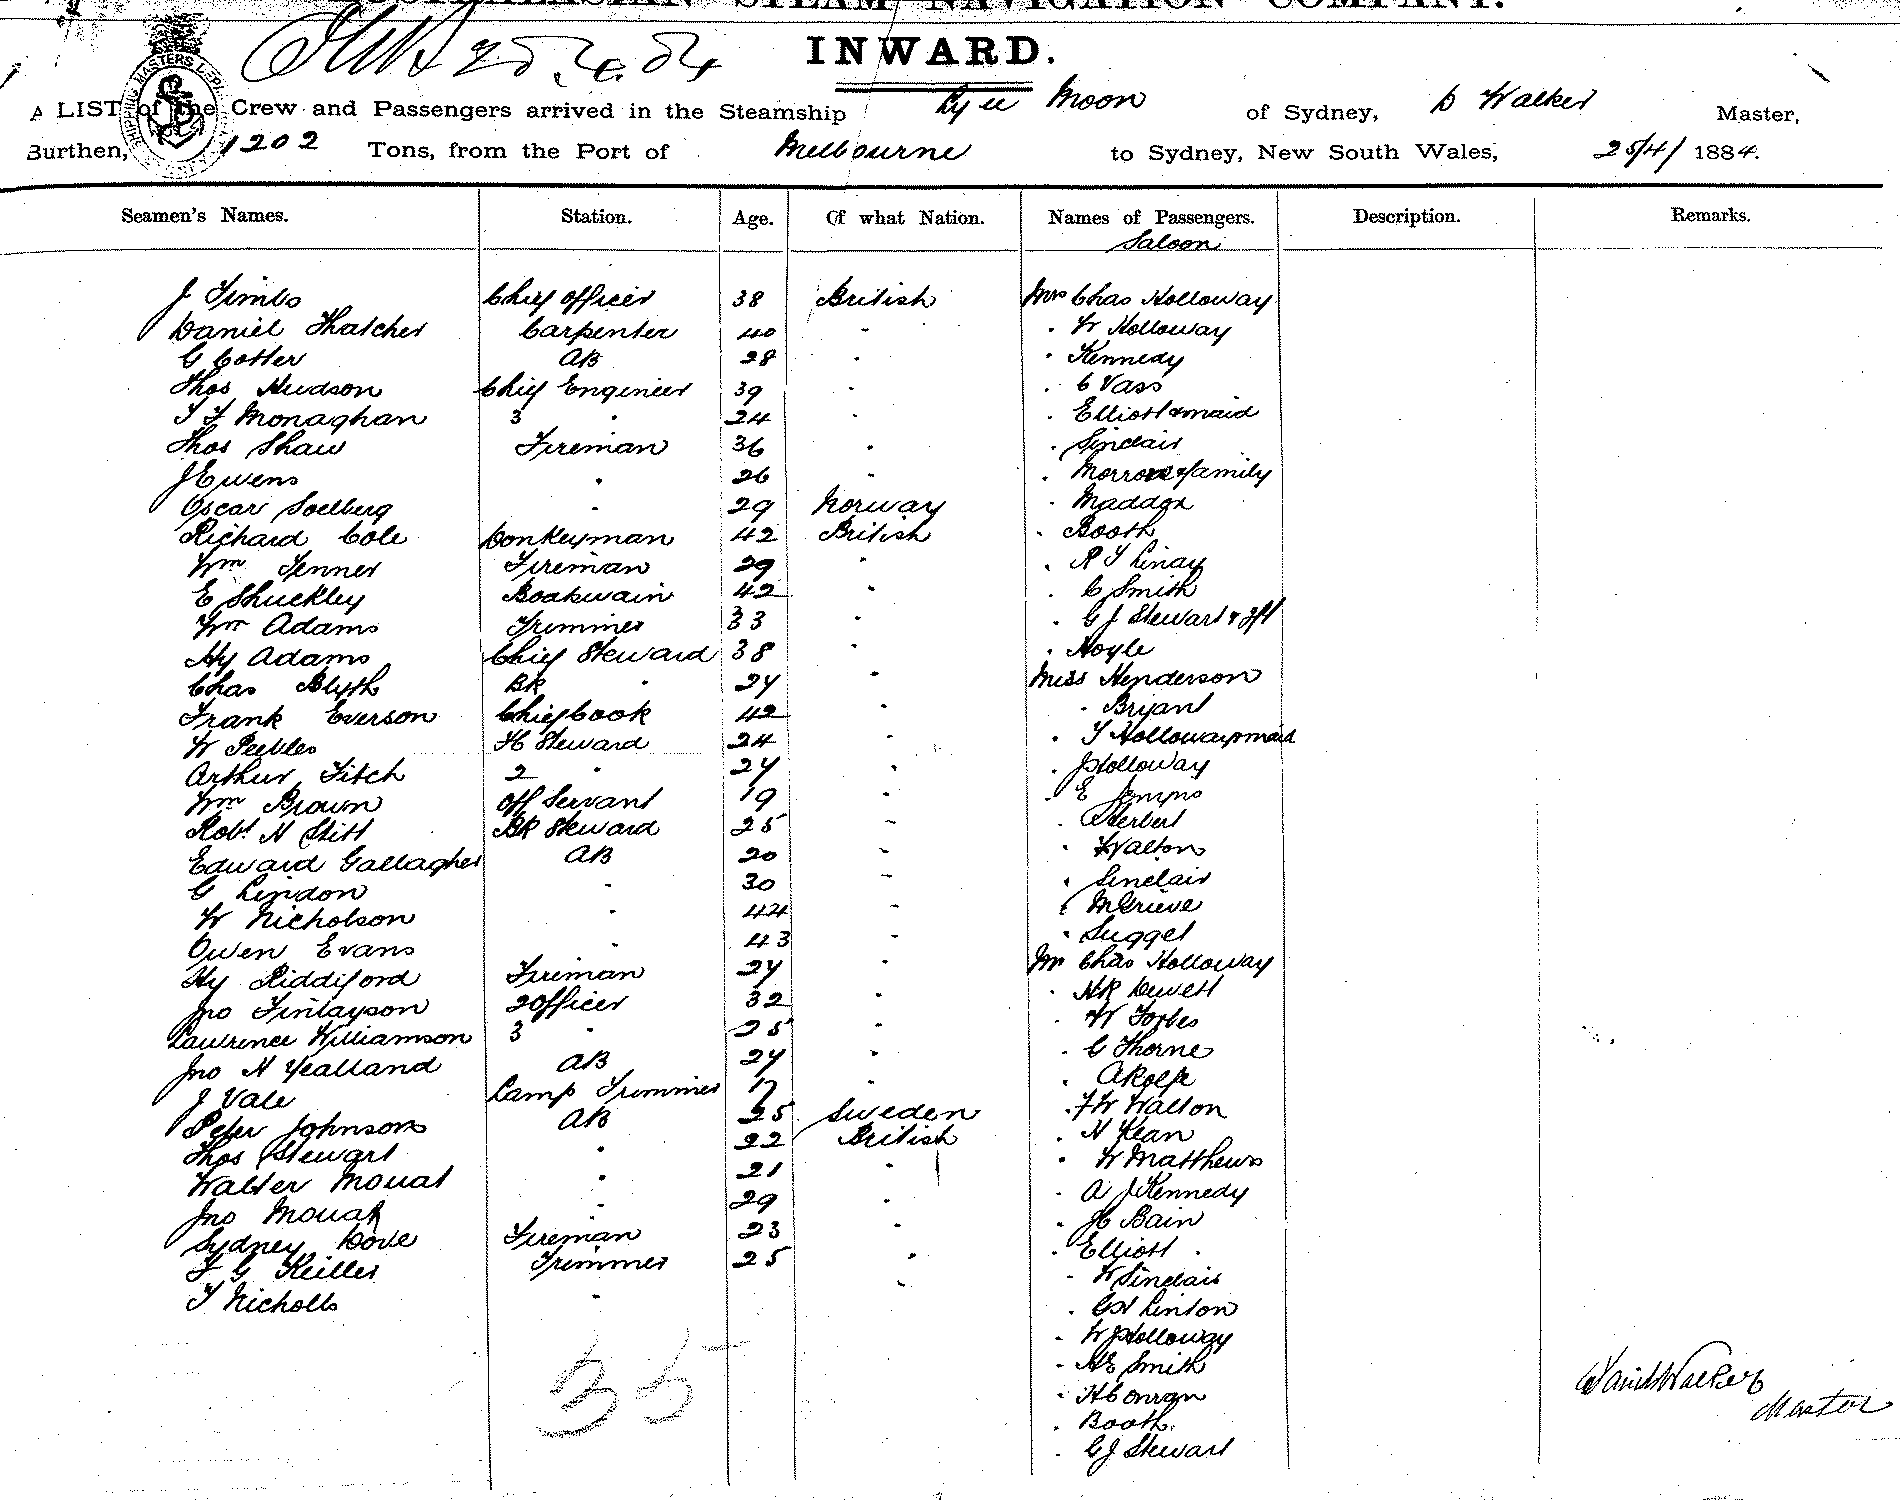 STEAM NAVIGATION COMPANY.
INWARD.
A LIST of the Crew and Passengers arrived in the Steamship Ly ee Moon of Sydney, D Walker Master,
Burthen, 1202 Tons, from the Port of Melbourne to Sydney, New South Wales, 25/4/ 1884.
Seamen's Names. Station. Age. Of what Nation. Names of Passengers. Description. Remarks.
Saloon
J Timbs Chief Officer 38 British Mrs Chas Holloway
Daniel Thatcher Carpenter 40 " " W Holloway
G Cotter AB 28 " " Kennedy
Thos Hudson Chief Engineer 39 " " C Vass
T F Monaghan 3 " 24 " " Elliott & maid
Thos Shaw Fireman 36 " " Sinclair
J Ewens " 26 " " Morrow & family
Oscar Soelberg " 29 Norway " Maddox
Richard Cole Donkeyman 42 British " Booth
Wm Jenner Fireman 29 " " R T Linay
E Shuckley Boatswain 42 " " C Smith
Wm Adams Trimmer 33 " " G J Stewart &
Hy Adams Chief Steward 38 " " Hoyle
Chas Blyth BK " 24 " Miss Henderson
Frank Everson Chief Cook 42 " " Bryant
W Peebles H Steward 24 " " T Holloway & maid
Arthur Fitch 2 " 24 " " J Holloway
Wm Brown Off Servant 19 " " E
Robt H Stitt BK Steward 25 " " Herbert
Edward Gallagher AB 20 " " Walton
G Lindon " 30 " " Sinclair
W Nicholson " 44 " " McGrieve
Owen Evans " 43 " " Sugget
Hy Riddiford Fireman 24 " Mr Chas Holloway
Jno Finlayson 2 Officer 32 " " H R Dewett
Lawrence Williamson 3 " 25 " " W Forbes
Jno H Yealland AB 24 " " C Thorne
J Vale Lamp Trimmer 17 " " A Rolfe
Peter Johnson AB 25 Sweden " F W Walton
Thos Stewart " 22 British " H Kean
Walter Mouat " 21 " " W Matthews
Jno Mouat " 29 " " A J Kennedy
Sydney Dove Fireman 23 " " H Bain
F G Keiller Trimmer 25 " " Elliott
T Nicholls " " " W Sinclair
" C H Linton
" W J Holloway
35 " H E Smith
" H Conran
" Booth
" G J Stewart
David Walker
Master